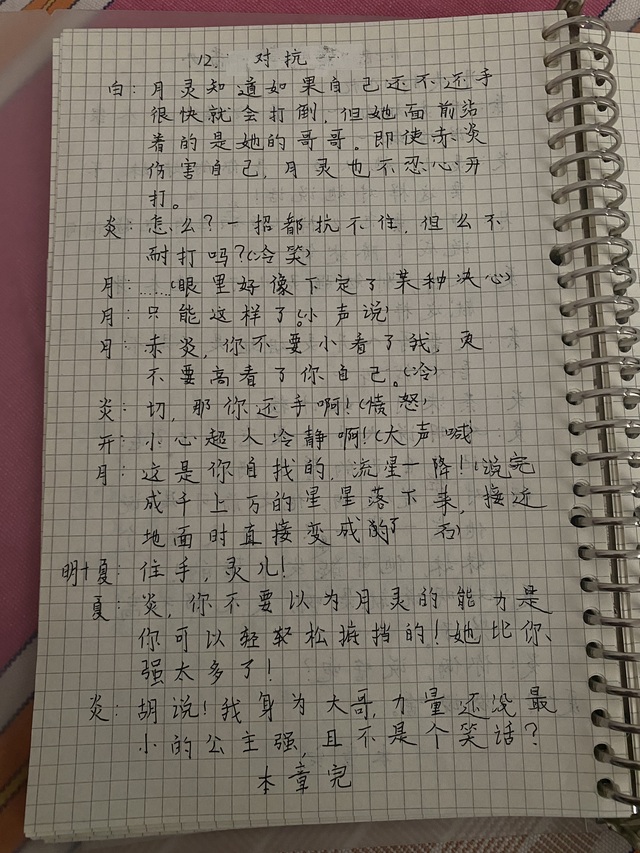 12. 对抗
白：月灵知道如果自己还不还手
很快就会打倒，但她面前站
着的是她的哥哥。即使赤炎
伤害自己，月灵也不忍心开
打。
炎：怎么？一招都抗不住，但么不
耐打吗？（冷笑）
月：……（眼里好像下定了某种决心）
月：只能这样了。（小声说）
月：赤炎，你不要小看了我，更
不要高看了你自己。（冷）
炎：切，那你还手啊！（愤怒）
开：小心超人冷静啊！（大声喊）
月：这是你自找的，流星一降！（说完
成千上万的星星落下来，接近
地面时直接变成的了 石）
明+夏：住手，灵儿！
夏：炎，你不要以为月灵的能力是
你可以轻轻松掂挡的！她比你、
强太多了！
炎：胡说！我身为大哥，力量还没最
小的公主强，且不是个笑话？
本章完